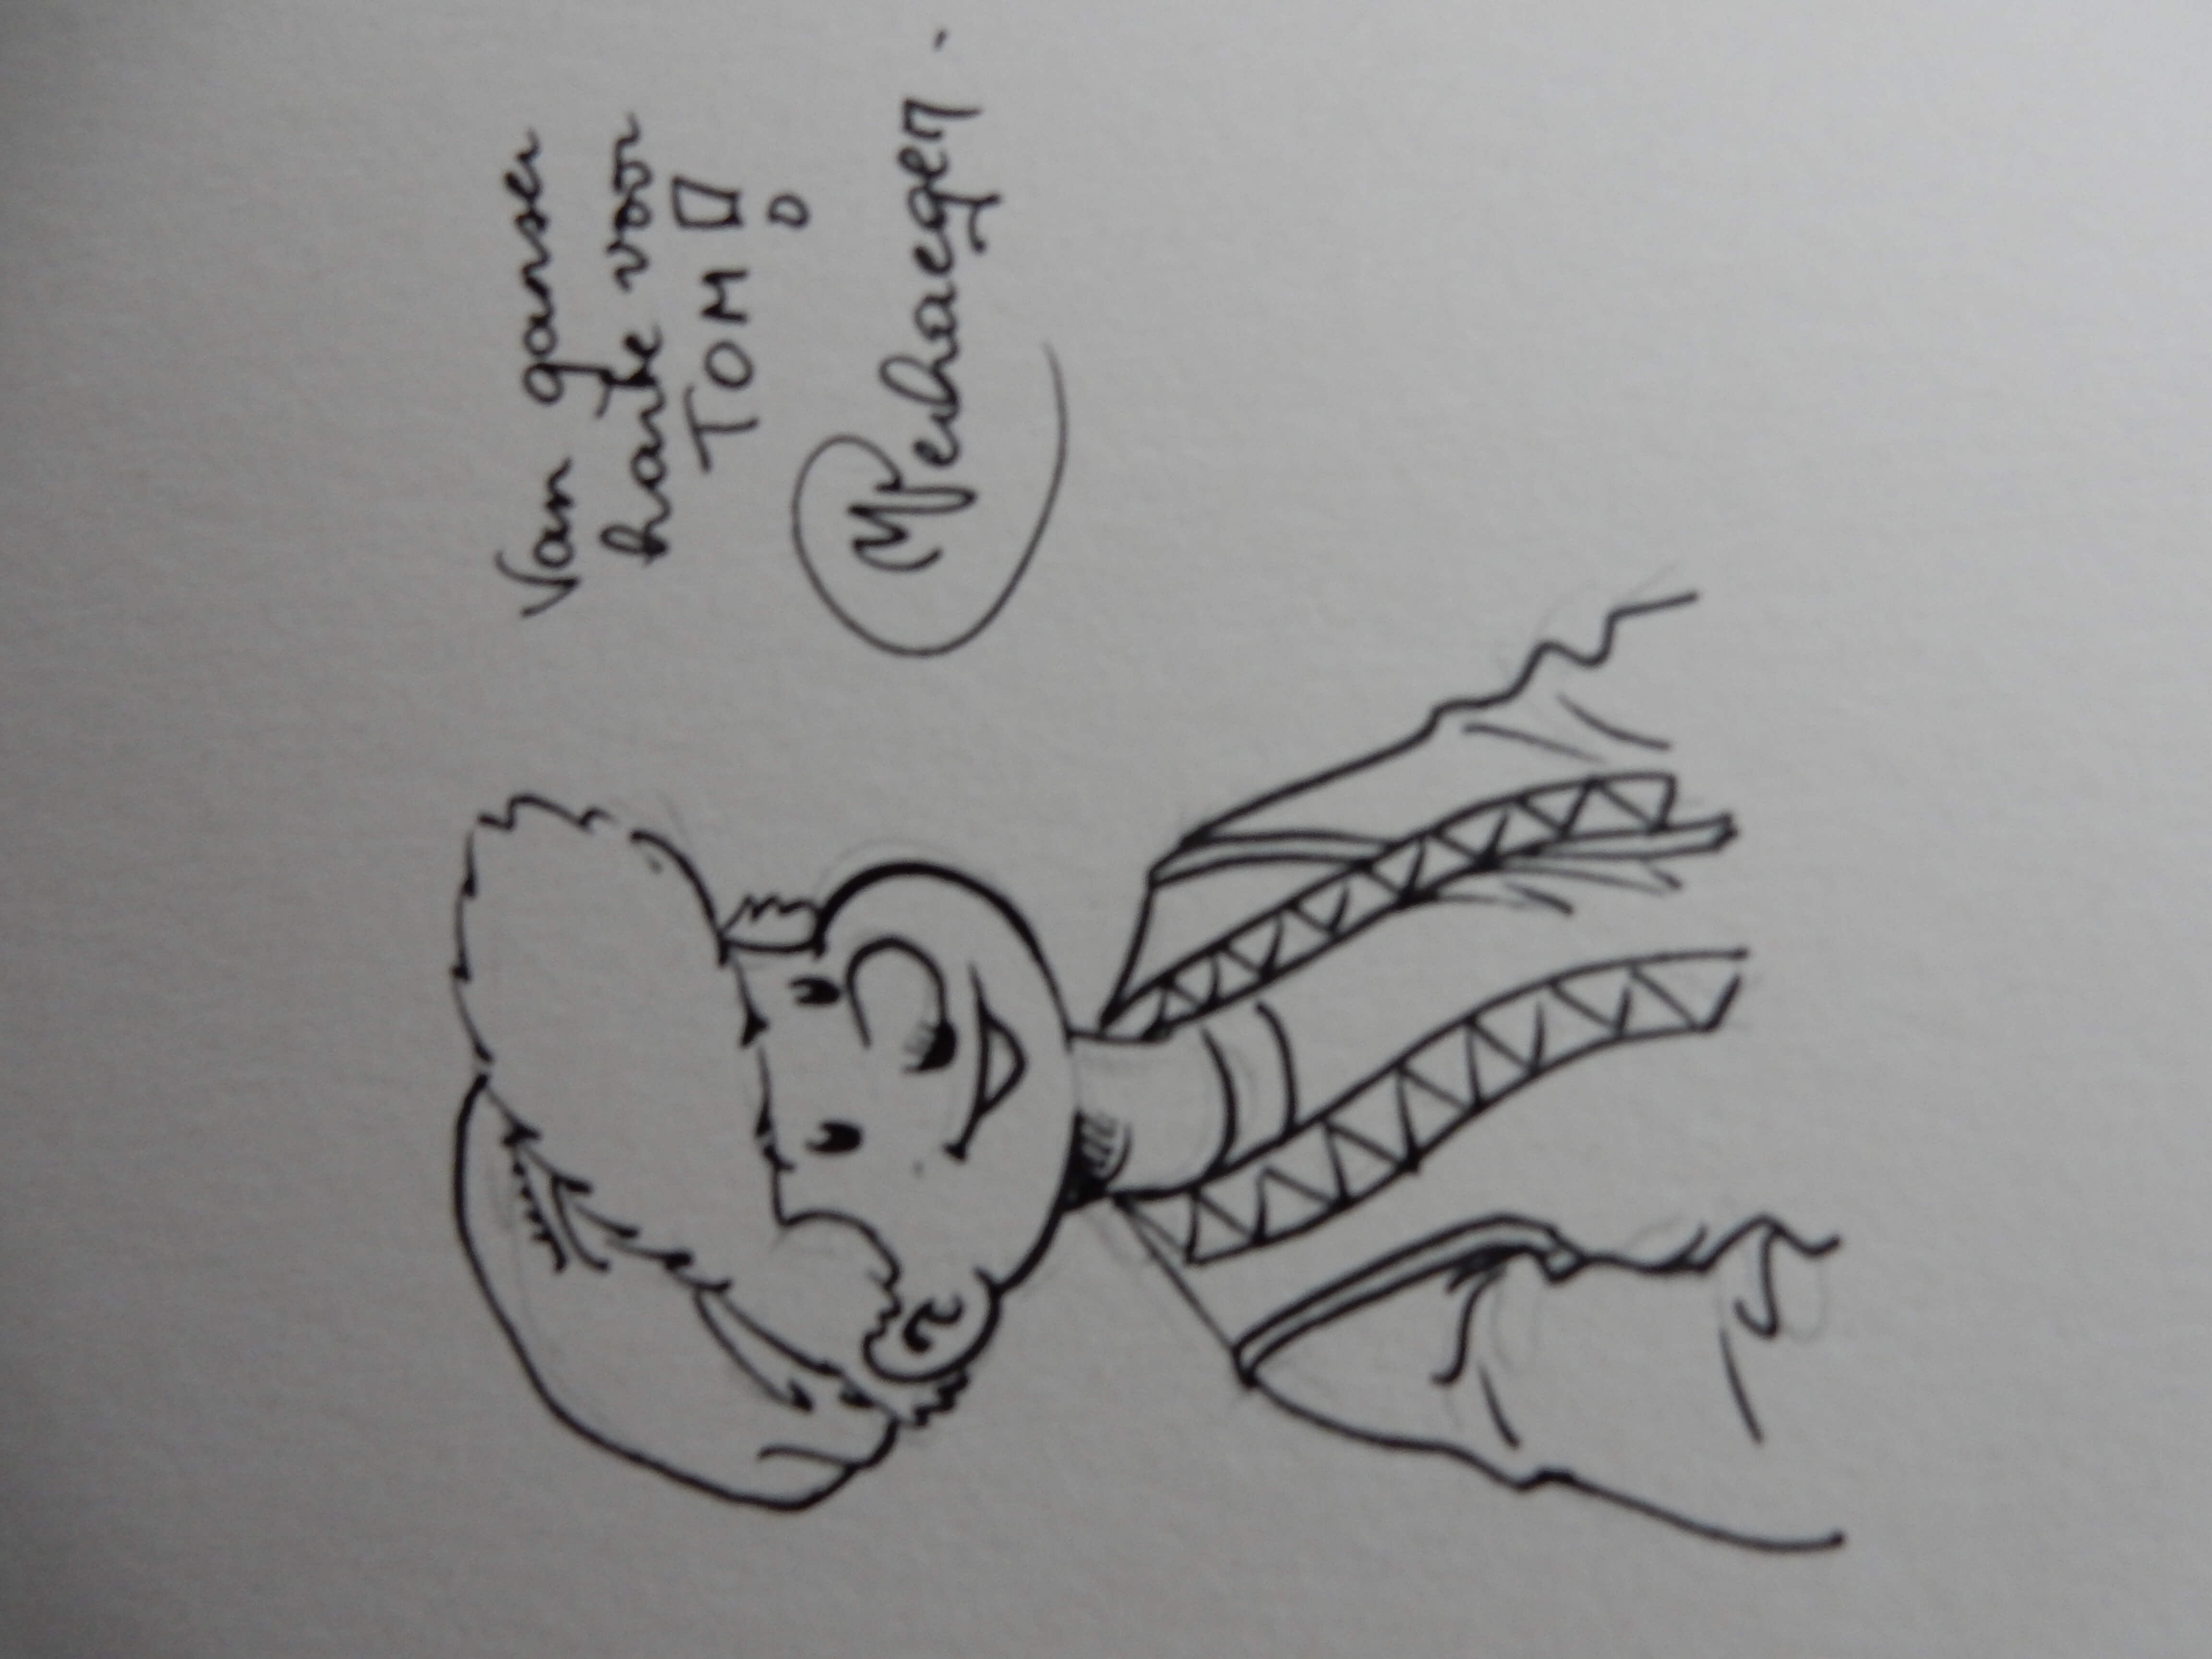 Van ganser
harte voor
TOM!
MVerhaegen.